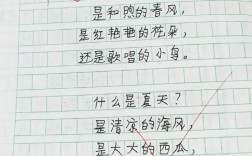 是和煦的春风，
是红艳艳的花朵，
还是歌唱的小鸟。
什么是夏天？
是清凉的海风，
是大大的西瓜，